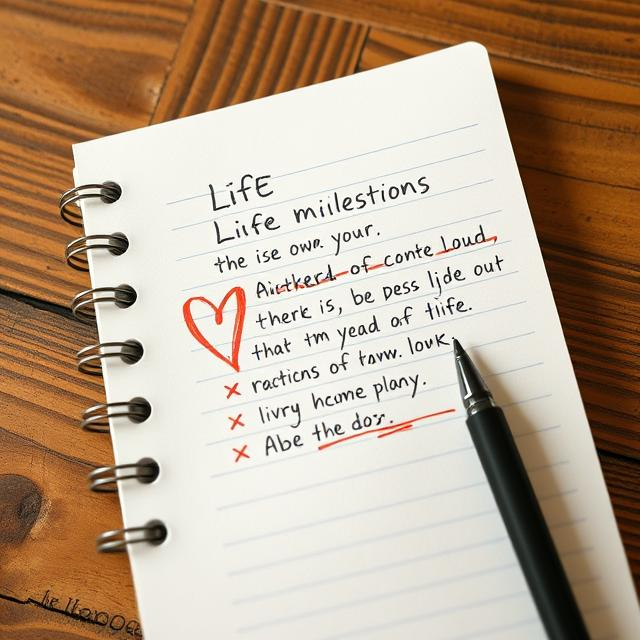 LifE
Liife miilestions
the ise own. your.
Airtkerd of conte loud,
therk is, be pess ljde out
that tm yead of tlife.
racticns of town. louk.
livry hcume plany.
Abe the dos.